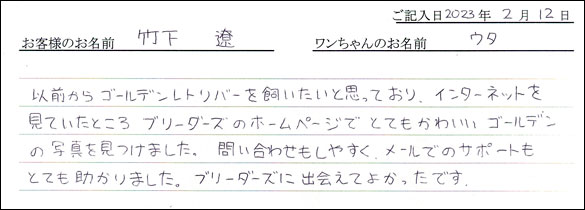 ご記入日2023年 2月 12日
お客様のお名前 竹下 遼 ワンちゃんのお名前 ウタ
以前からゴールデンレトリバーを飼いたいと思っており、インターネットを
見ていたところ ブリーダーズのホームページで とてもかわいい ゴールデン
の写真を見つけました。 問い合わせもしやすく、メールでのサポートも
とても助かりました。ブリーダーズに出会えてよかったです。